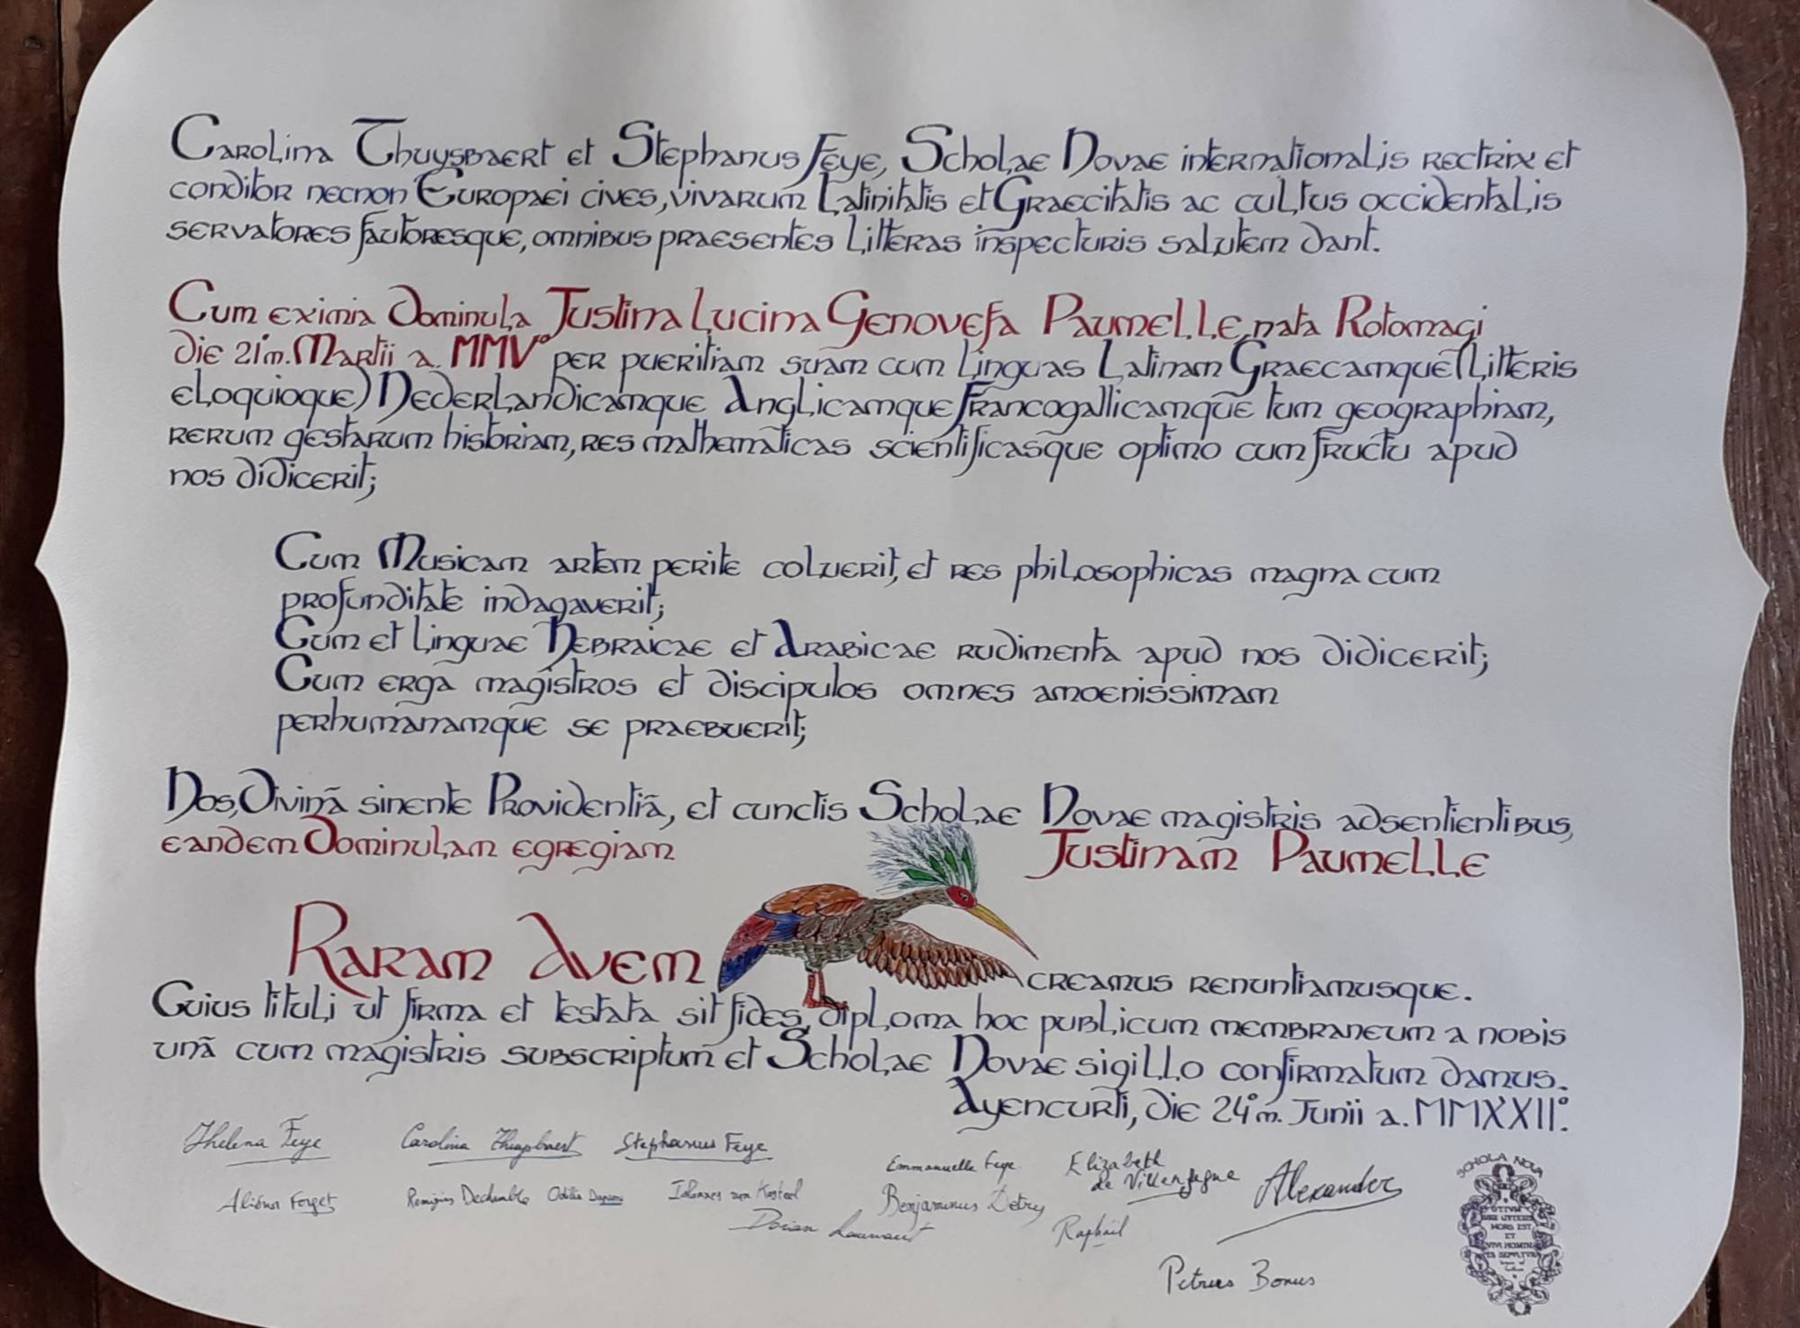 Carolina Thuysbaert et Stephanus Feye, Scholae Novae internationalis rectrix et
conditor necnon Europaei cives, vivarum Latinitatis et Graecitatis ac cultus occidentalis
servatores fautoresque, omnibus praesentes litteras inspecturis salutem dant.
Cum eximia Dominula Justina Lucina Genovefa Paumelle, nata Rotomagi
die 21º m. Martii a. MMVº per pueritiam suam cum linguas Latinam Graecamque (litteris
eloquioque) Nederlandicamque Anglicamque Francogallicamque tum geographiam,
rerum gestarum historiam, res mathematicas scientificasque optimo cum fructu apud
nos didicerit;
Cum Musicam artem perite coluerit, et res philosophicas magna cum
profunditate indagaverit;
Cum et linguae Hebraicae et Arabicae rudimenta apud nos didicerit;
Cum erga magistros et discipulos omnes amoenissimam
perhumanamque se praebuerit;
Nos, Divinā sinente Providentiā, et cunctis Scholae Novae magistris adsentientibus,
eandem Dominulam egregiam Justinam Paumelle
Raram Avem creamus renuntiamusque.
Cuius tituli ut firma et testata sit fides, diploma hoc publicum membraneum a nobis
unā cum magistris subscriptum et Scholae Novae sigillo confirmatum damus.
Ayencurti, die 24º m. Junii a. MMXXIIº.
Thelena Feye Carolina Thuysbaert Stephanus Feye Emmanuella Feye Elizabeth
de Villenfagne Alexander
Aliénor Forget Remigius Odilia Iohannes van Kasteel Benjaminus Detry
Dorian Raphaël
Petrus Bonus
SCHOLA NOVA
OTIUM
SINE LITTERIS
MORS EST
ET
VIVI HOMINIS
SEPULTURA